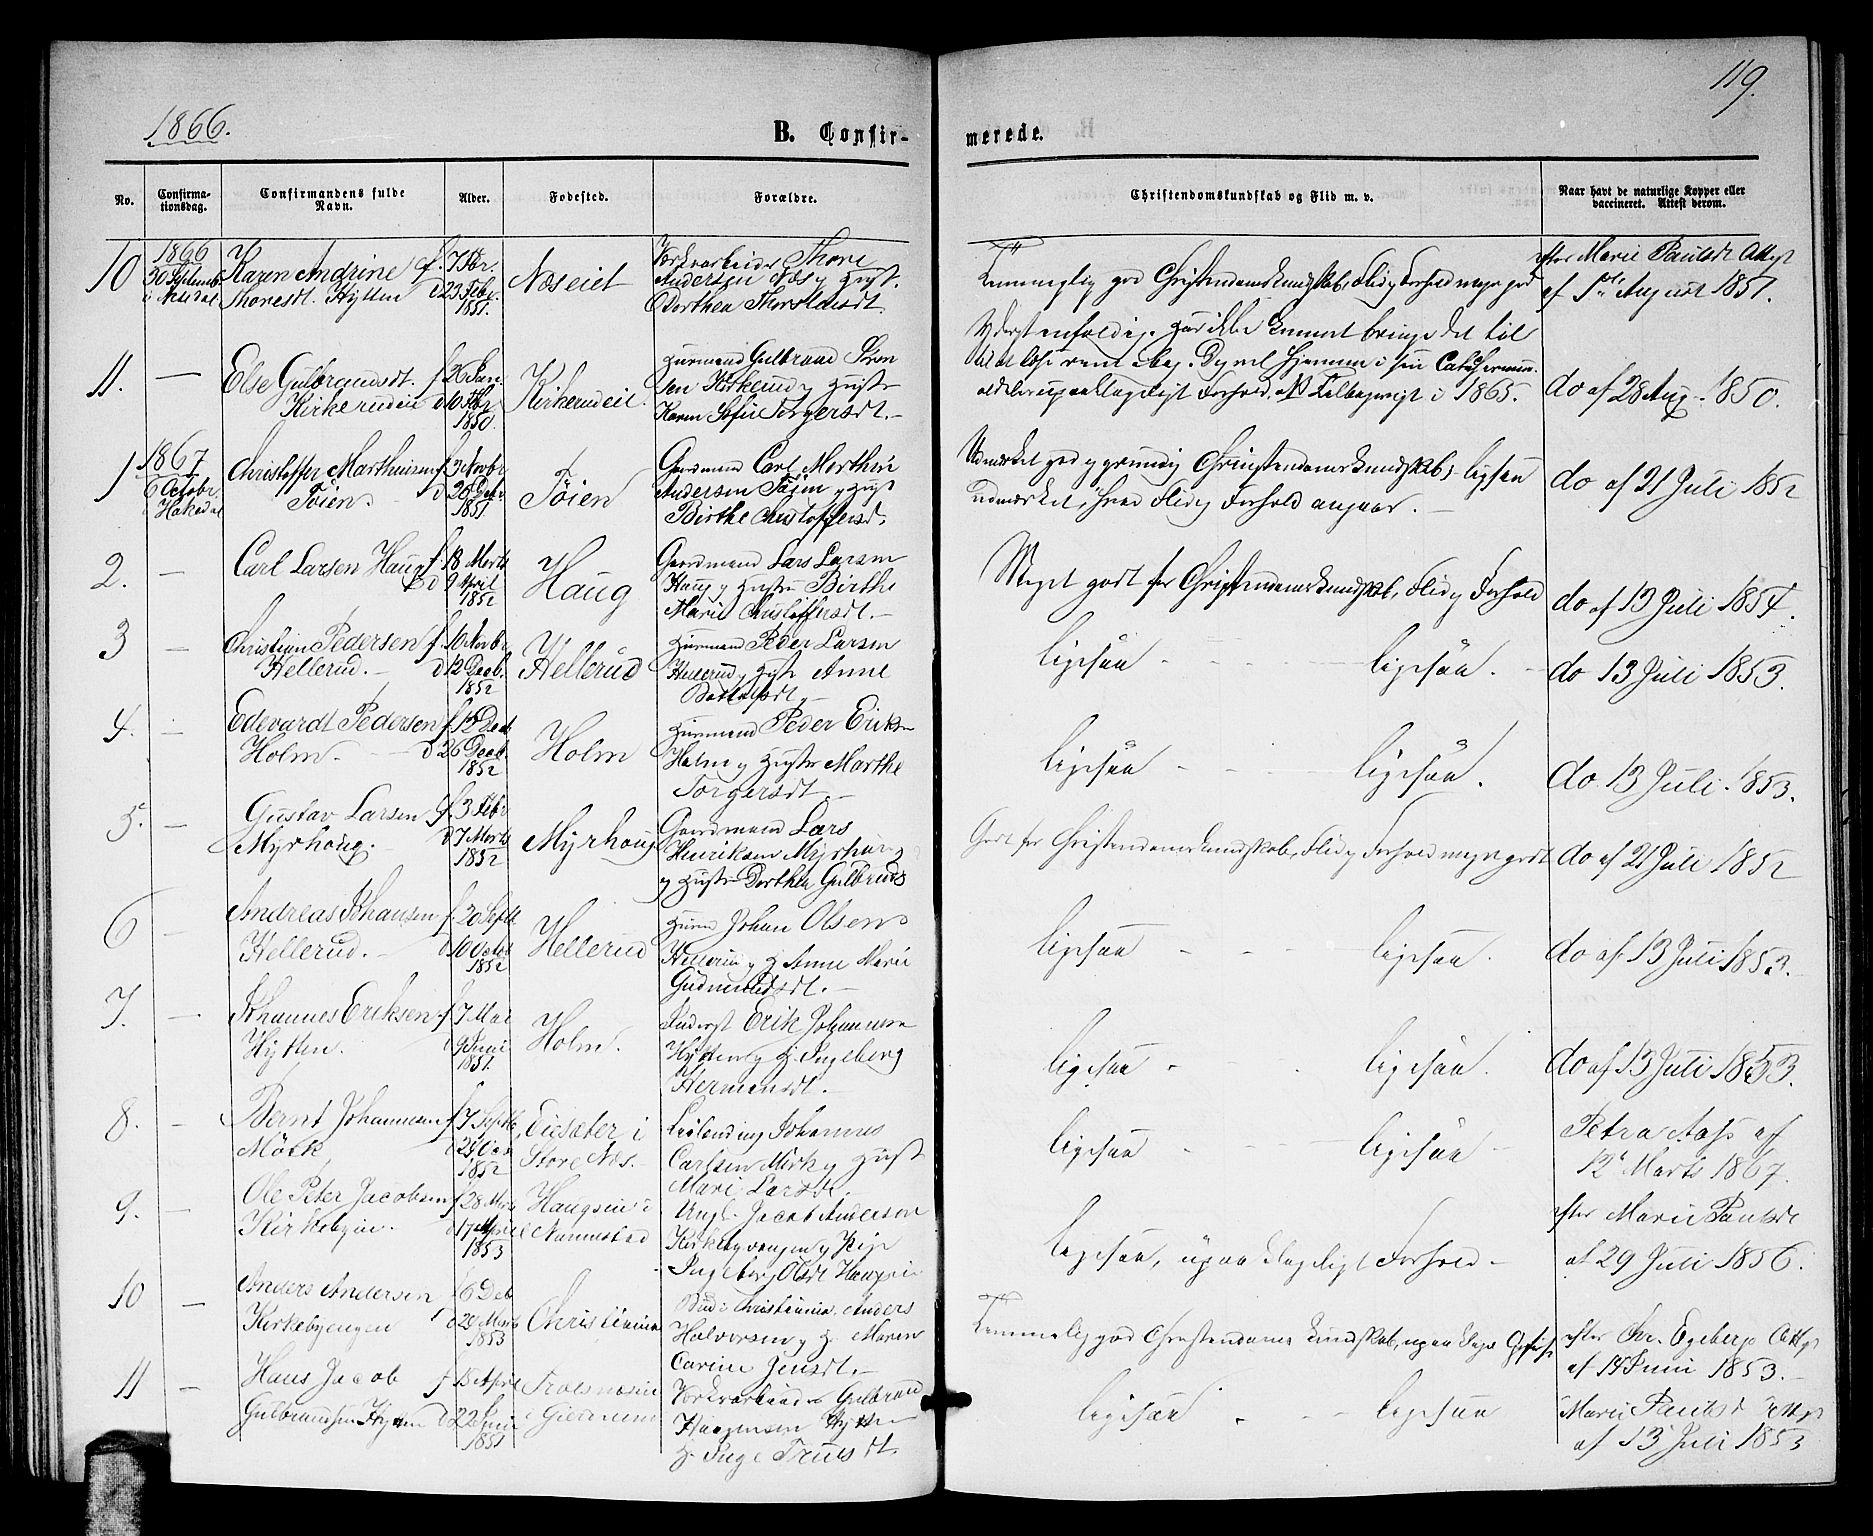 1866.
B. Confir-
merede.
119.
No.
Confirma-
tionsdag.
Confirmandens fulde
Navn.
Alder.
Fødested.
Forældre.
Christendomskundskab og Flid m. v.
Naar havt de naturlige Kopper eller
vaccineret. Attest derom.
10
1866
30 Septemb
Karen Andrine
Thoresdt. Hytten
f. 7 Febr.
d 23 Febr.
1851.
Næseiet
Thore
Andersen Næs og Hust.
Dorthea
god Christendomskundskab, Flid og Forhold meget god
efter Marie Paulsdt Attest
af 1ste August 1851.
11.
—
Else Gulbrandsdt.
Kirkerudeie
f 26 Jan.
d 10 Febr
1850.
Kirkerudeie
Huusmand Gulbrand
Kirkerud og Hustr
Karen Sofie Torgersdt. —
Forhold. 1865.
do af 28 Aug. 1850.
1
1867
6 Octobr.
Hakedal
Christoffer Marthinsen
Tøien.
f. 3 Novbr
d 26 Decbr
1851
Tøien
Gaardmand Carl Marthin
Andersen Tøien og Hust
Birthe Christoffersdt.
Udmærket god og grundig Christendomskundskab, ligesaa
udmærket, hvad Flid og Forhold angaaer. —
do af 21 Juli 1852
2.
—
Carl Larsen Haug
f 18 Marts
d 9 April
1852
Haug
Gaardmand Lars Larsen
Haug og Hustru Birthe
Marie Christoffersdt. —
Meget godt for Christendomskundskab, Flid og Forhold
do af 13 Juli 1854.
3
—
Christian Pedersen
Hellerud. —
f. 10 Novbr
d 12 Decb.
1852
Hellerud
Huusmand Peder Larsen
Hellerud og Hustr Anne
ligesaa - - - ligesaa. —
do 13 Juli 1853.
4.
—
Edevardt Pedersen
Holm. —
f 12 Dec
d 26 Decb.
1852
Holm
Huusmand Peder Eriksen
Holm og Hustru Marthe
Torgersdt —
ligesaa - - - ligesaa.
do. 13 Juli. 1853.
5.
—
Gustav Larsen
Myrhoug.
f. 3 Febr
d 7 Marts
1852
Myrhoug
Gaardmand Lars
Henriksen Myrhaug
og Hustr Dorthea Gulbrands
Godt for Christendomskundskab, Flid og Forhold meget godt
do af 21 Juli 1852
6
—
Andreas Johansen
Hellerud. —
f 20 Septb.
d 10 Octob
1852
Hellerud
Johan Olsen
Hellerud og H Anne Marie
Gudmundsdt. —
ligesaa - - - ligesaa.
do af 13 Juli 1853.
7.
—
Johannes Eriksen
Hytten.
f 7 Mai
d 9 Juni
1851.
Holm.
Inderst Erik Johannesen
Hytten og H. Ingeborg
Hermansdt. —
ligesaa - - ligesaa.
do af 13 Juli 1853.
8.
—
Bernt Johannesen
Mörk
f 7 Septb.
1852
Eiesæter i
Store Næs. —
Johannes
Carlsen Mörk og Hust
Mari Larsdt.
ligesaa - - ligesaa —
Petra Aass af
12t Marts 1867.
9.
—
Ole Peter Jacobsen
Kirkebyeie.
f 28 Marts
d 17 April
1853
Haugseie i
Nannestad
Ungk. Jacob Andersen
Kirkebyengen og Pige
Ingeborg Olsdt Haugseie
ligesaa, upaaklageligt Forhold —
efter Marie Paulsdt
af 29 Juli 1856.
10
—
Anders Andersen
Kirkebyengen
f 6 Deb
d 20 Marts
1853
Christiania
Bud i Christiania, Anders
Halvorsen og H. Maren
Carine Jensdt. —
god Christendoms Kundskab,
efter Chr. Egeberg Attest
af 14 Juni 1853. —
11
—
Hans Jacob
Gulbrandsen Hytten
f 15 April
d 22 Juni
1851
i Gjerdrum
Gulbrand
Haagensen Hytten
H Inge Trulsdt.
ligesaa - - ligesaa
Marie Paulsd Attest
af 13 Juli 1853